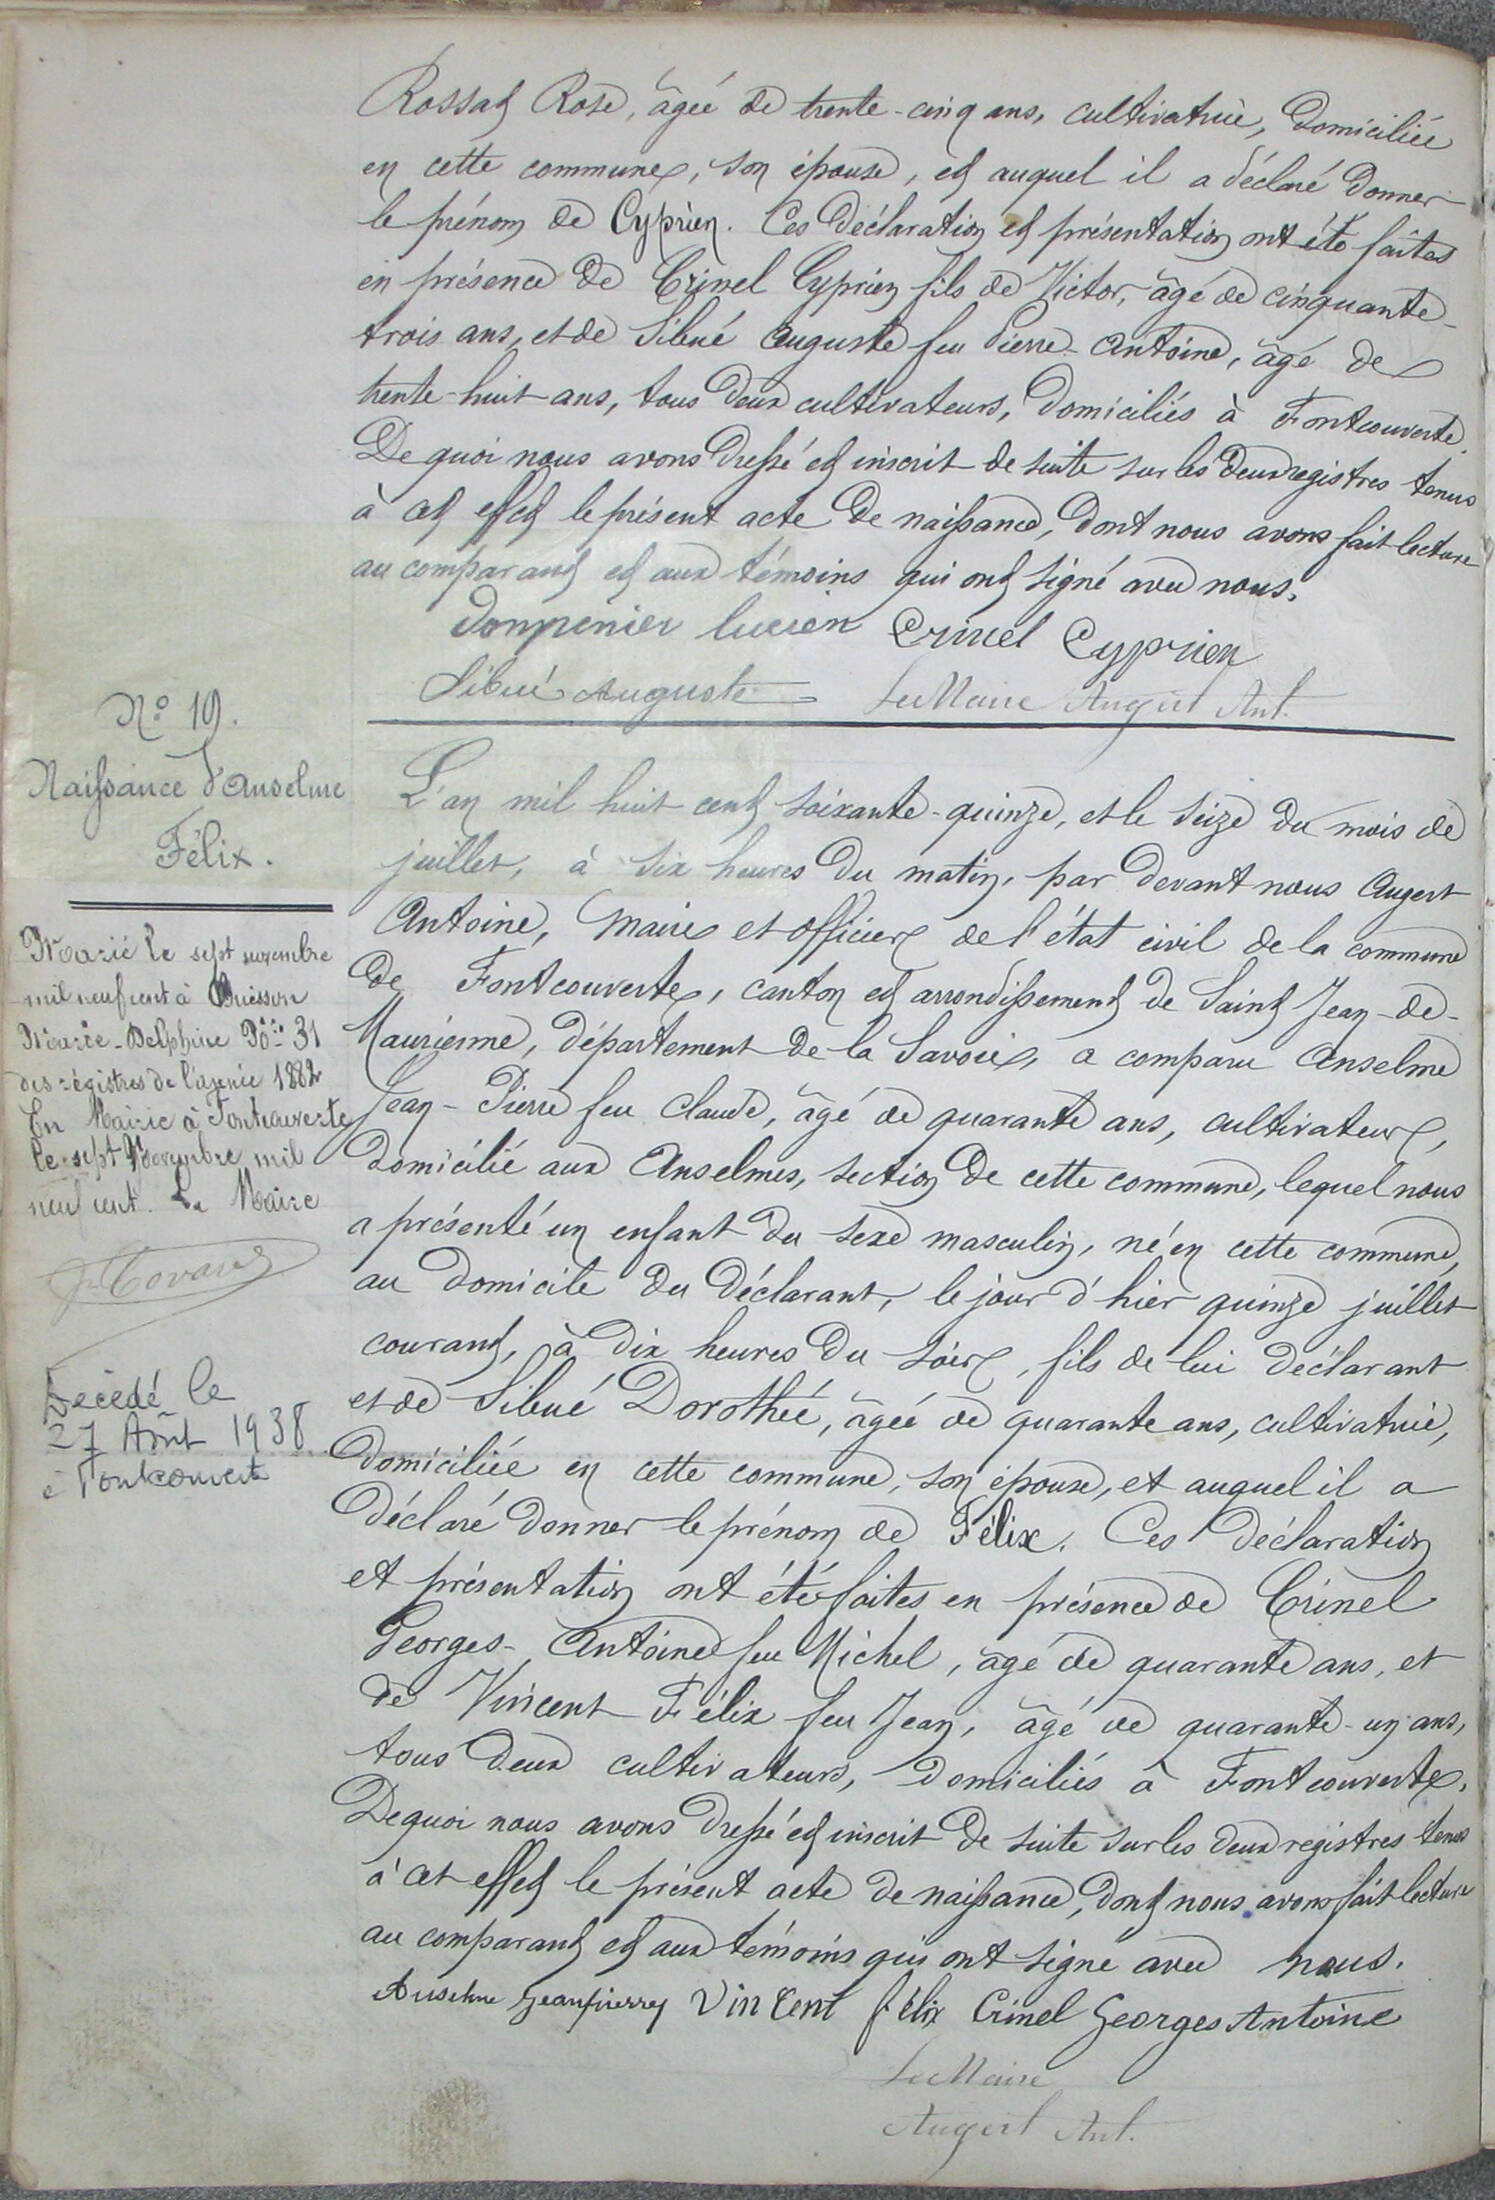 Rossat Rose, âgée de trente-cinq ans, cultivatrice, domiciliée
en cette commune, son épouse, et auquel il a déclaré donner
le prénom de Cyprien. Ces déclaration et présentation ont été faites
en présence de Crinel Cyprien fils de Victor, âgé de cinquante-
trois ans, et de Sibué Auguste feu Pierre-Antoine, âgé de
trente-huit ans, tous deux cultivateurs, domiciliés à Fontcouverte.
De quoi nous avons dressé et inscrit de suite sur les deux registres tenus
à cet effet le présent acte de naissance, dont nous avons fait lecture
au comparant et aux témoins qui ont signé avec nous.
Dompnier lucien Crinel Cyprien
Sibué Auguste Le Maire Augert Ant.
N° 19.
Naissance d'Anselme
Félix.
Marié le sept novembre
mil neuf cent à Buisson
Marie-Delphine 31
des régistres de l'année 1882
En Mairie à Fontcouverte
le sept Novembre mil
neuf cent. Le Maire
Décédé le
27 Août 1938
à Fontcouverte
L'an mil huit cent soixante-quinze, et le seize du mois de
juillet, à six heures du matin, par devant nous Augert
Antoine, Maire et officier de l'état civil de la commune
de Fontcouverte, canton et arrondissement de Saint Jean-de-
Maurienne, département de la Savoie, a comparu Anselme
Jean-Pierre feu Claude, âgé de quarante ans, cultivateur,
domicilié aux Anselmes, section de cette commune, lequel nous
a présenté un enfant du sexe masculin, né en cette commune,
au domicile du déclarant, le jour d'hier quinze juillet
courant, à dix heures du soir, fils de lui déclarant
et de Sibué Dorothée, âgée de quarante ans, cultivatrice,
domiciliée en cette commune, son épouse, et auquel il a
déclaré donner le prénom de Félix. Ces déclaration
et présentation ont été faites en présence de Crinel
Georges-Antoine feu Michel, âgé de quarante ans, et
de Vincent Félix feu Jean, âgé de quarante-un ans,
tous deux cultivateurs, domiciliés à Fontcouverte.
De quoi nous avons dressé et inscrit de suite sur les deux registres tenus
à cet effet le présent acte de naissance, dont nous avons fait lecture
au comparant et aux témoins qui ont signé avec nous.
Anselme Jeanpierre Vincent félix Crinel Georges Antoine
Le Maire
Augert Ant.